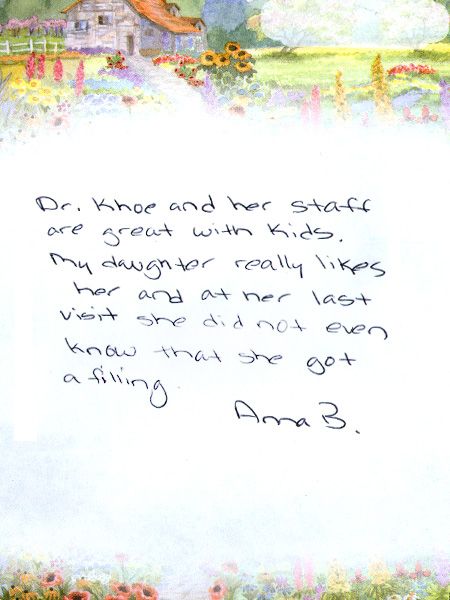 Dr. Khoe and her staff
are great with kids.
My daughter really likes
her and at her last
visit she did not even
know that she got
a filling.
Anna B.